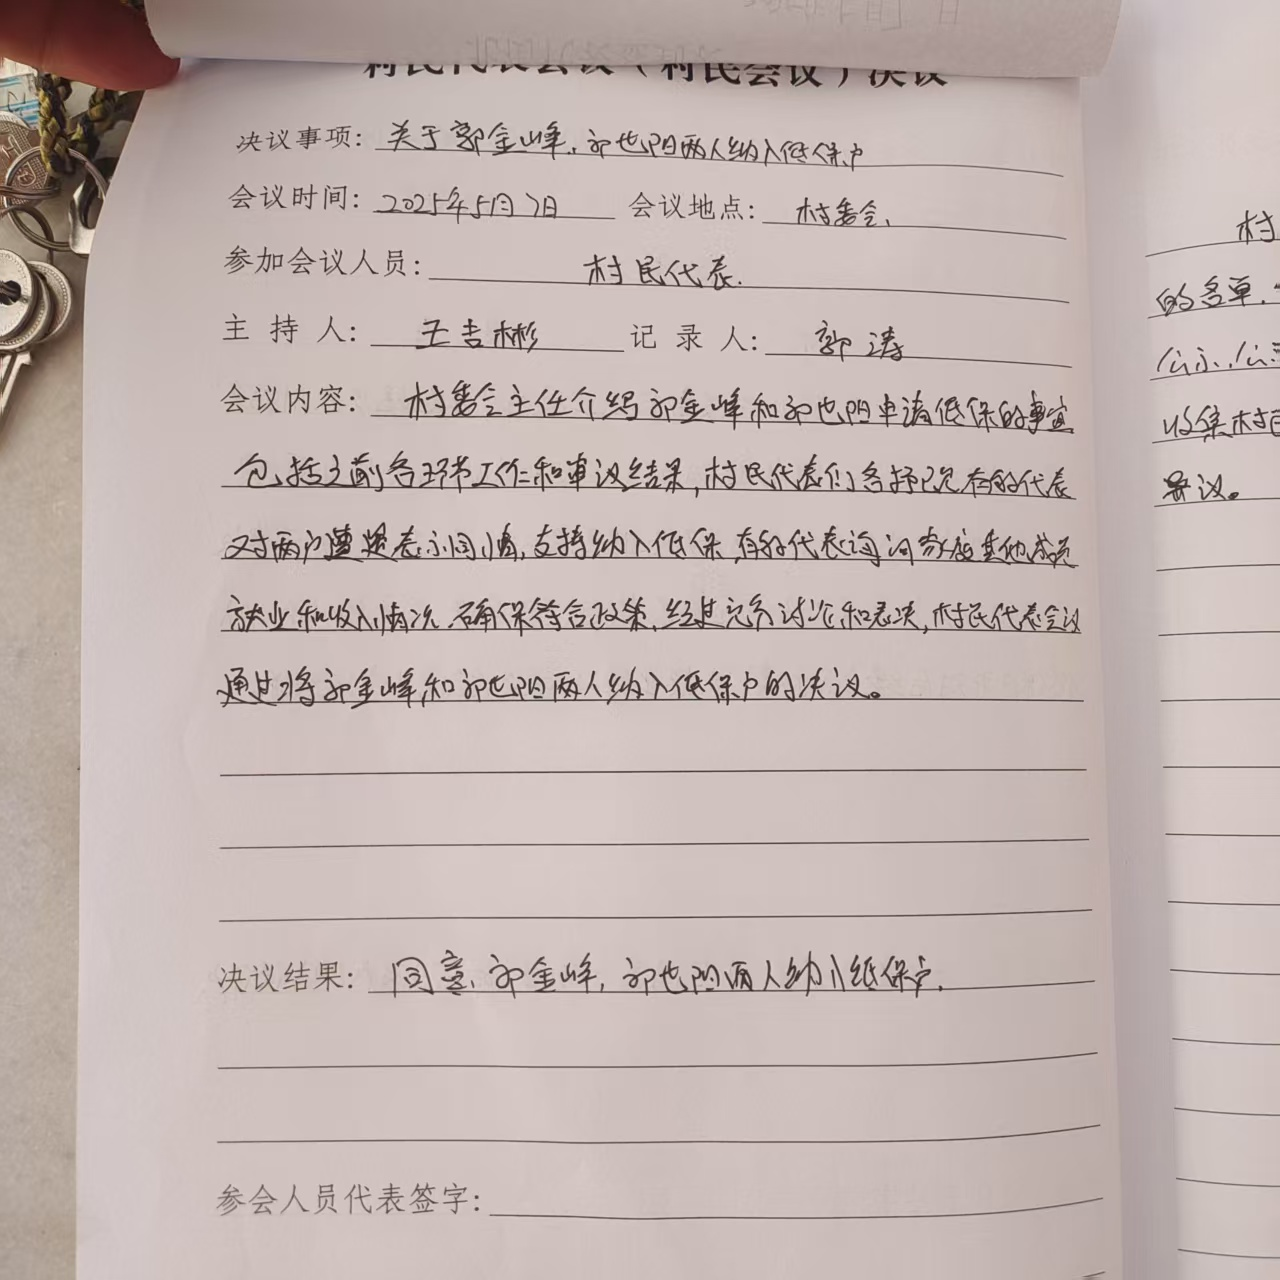 村民代表会议（村民会议）决议
决议事项：关于郭金峰、郭也阳两人纳入低保户
会议时间：2025年5月7日 会议地点：村委会、
参加会议人员：村民代表.
主持人：王吉彬 记录人：郭涛
会议内容：村委会主任介绍郭金峰和郭也阳申请低保的事宜
包括之前各环节工作和审议结果,村民代表们各抒己见有的代表
对两户遭遇表示同情,支持纳入低保,有的代表询问家庭其他成员
就业和收入情况,确保符合政策,经过充分讨论和表决,村民代表会议
通过将郭金峰和郭也阳两人纳入低保户的决议。
决议结果：同意、郭金峰,郭也阳两人纳入低保户.
参会人员代表签字：
村
的名单,
公示、公示
收集村民
异议。